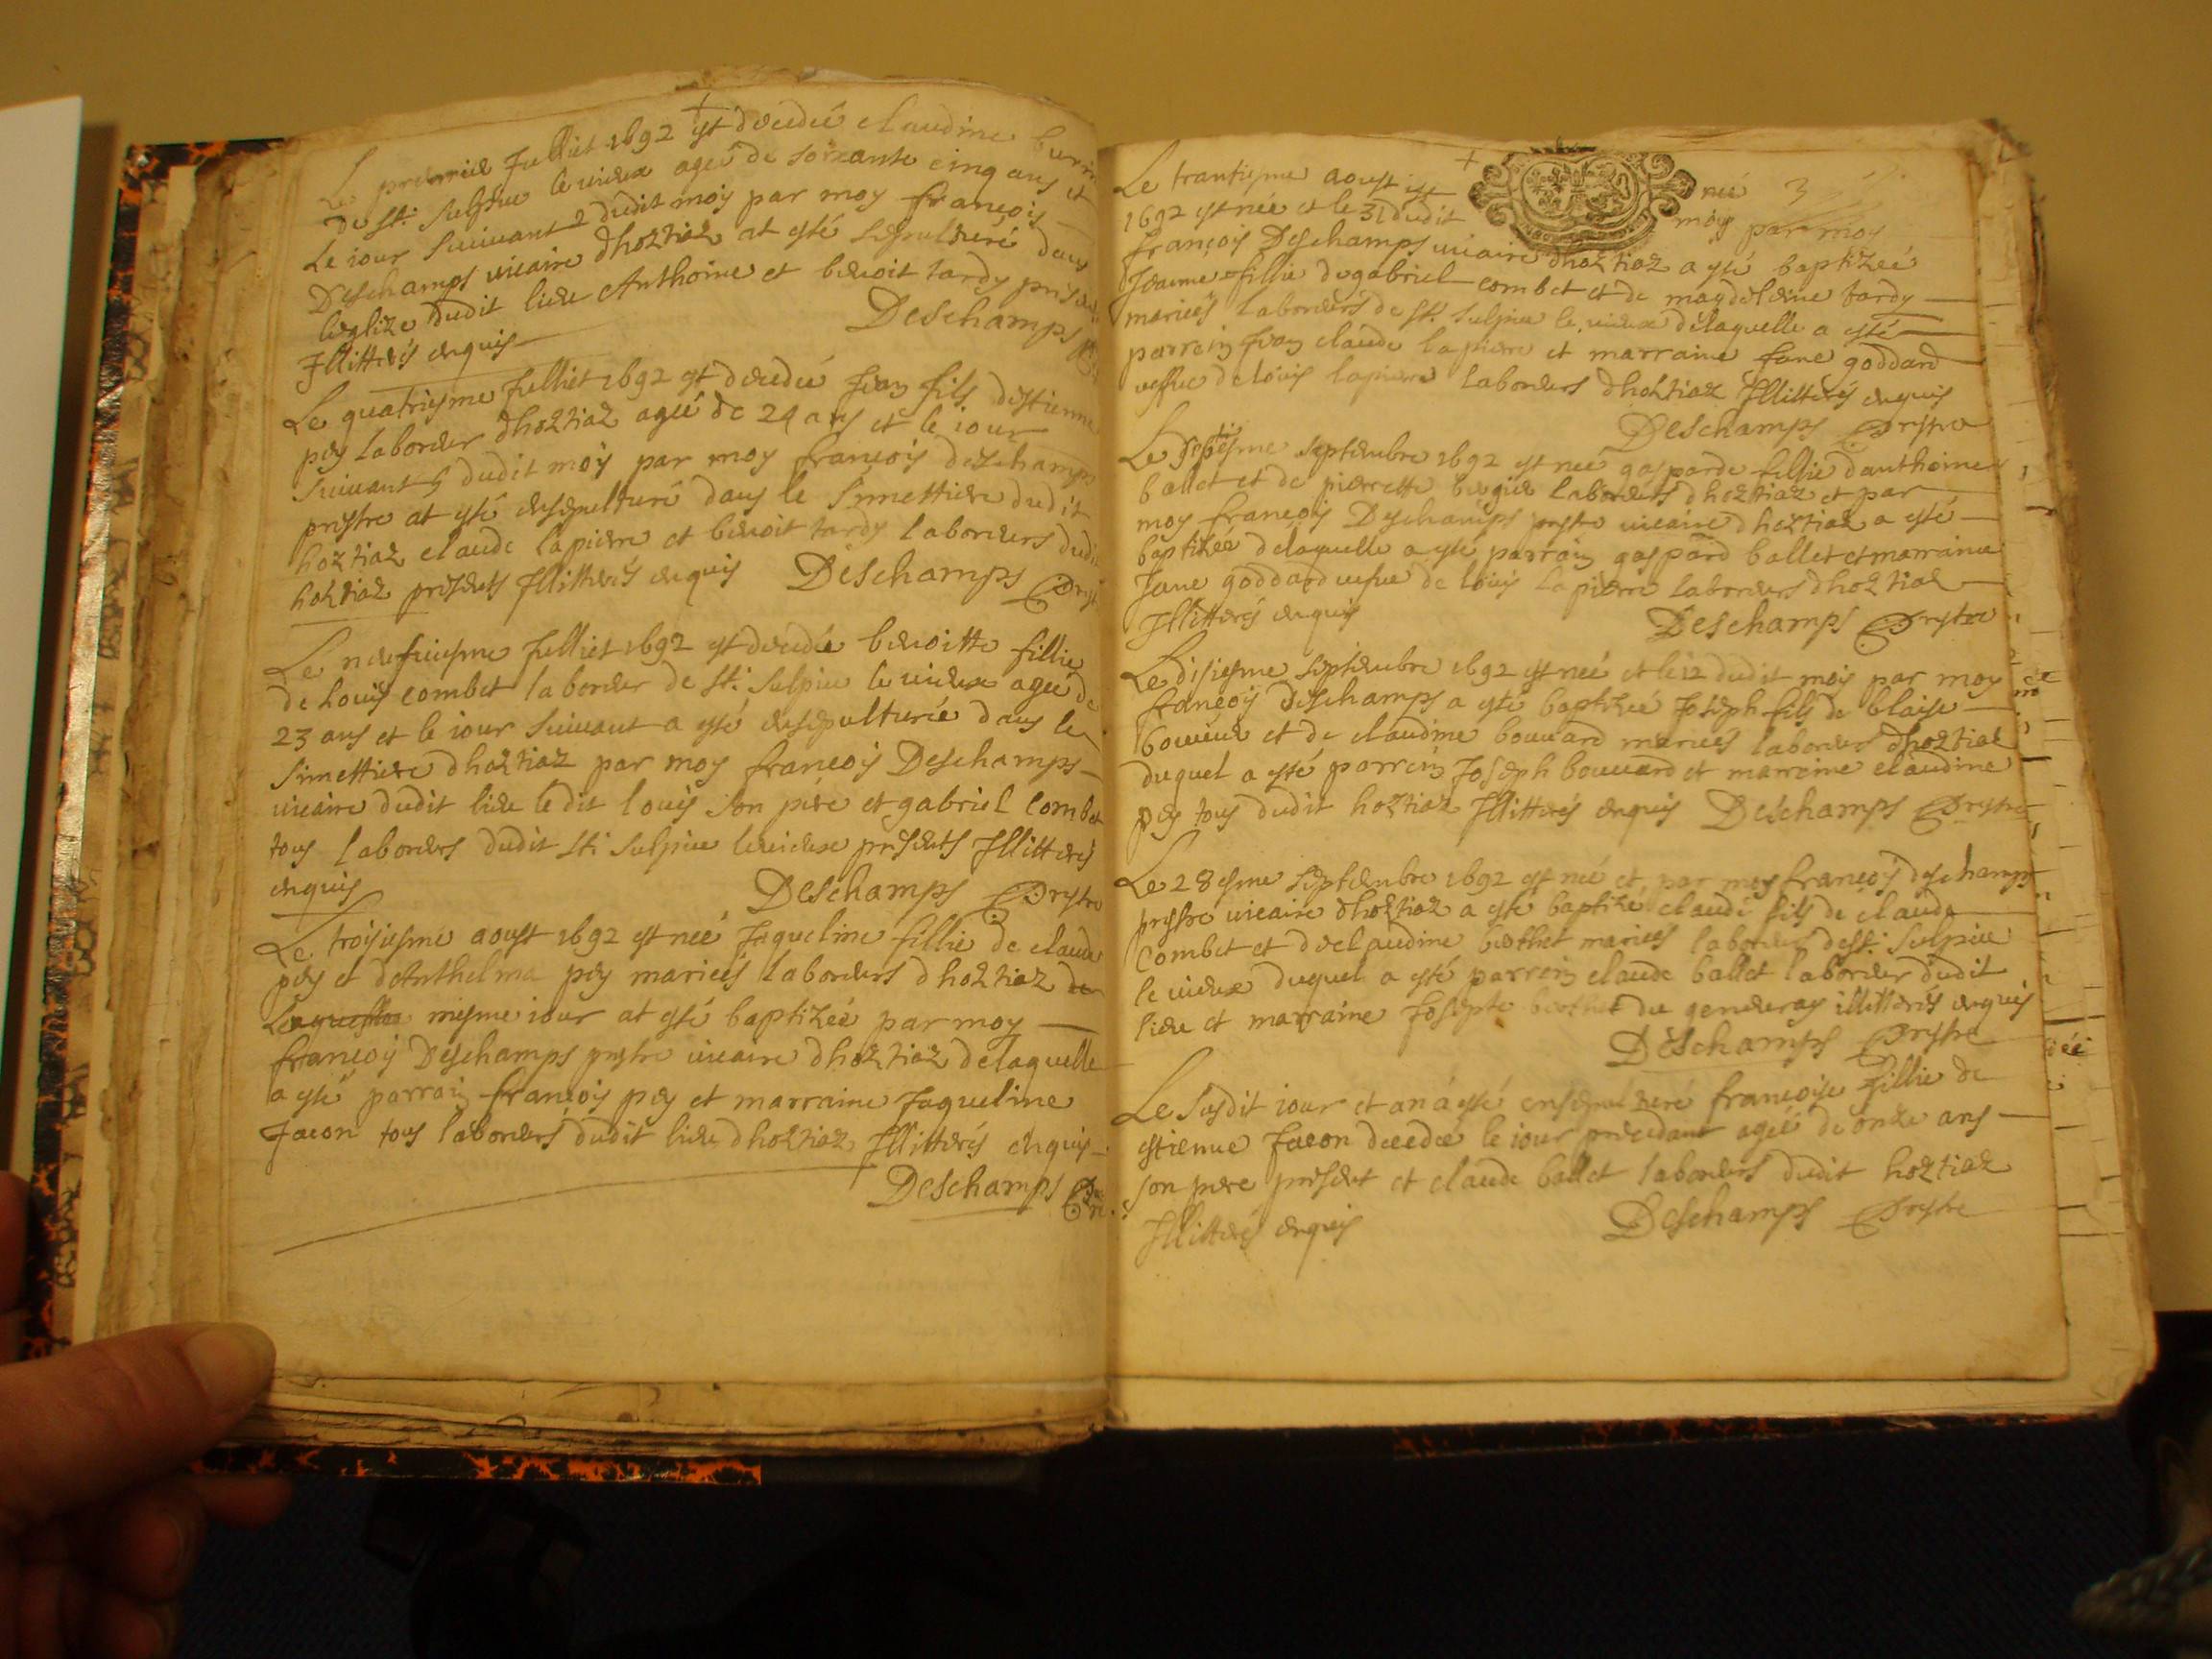 Le premier Julliet 1692 est decedé claudine
de st: Sulpice le vieux ageé de soixante cinq ans et
Le iour suivant 2 dudit moys par moy françois
Deschamps vicaire dhoztiaz at esté sepulturé dans
leglize dudit lieu Anthoine et benoit tardy
Illitterés enquis
Deschamps
Le quatriesme Julliet 1692 est decedé Jean fils destienne
pey laborer dhoztiaz ageé de 24 ans et le iour
suivant 5 dudit moys par moy françois deschamps
prestre at esté ensepulturé dans le simettiere dudit
hoztiaz claude lapierre et benoit tardy laborers dudit
hoztiaz presents Illitterés enquis Deschamps
Le neufviesme Julliet 1692 est decedée benoitte fillie
de Louis combet laborer de st: Sulpice le vieux ageé de
23 ans et le iour suivant a esté ensepulturée dans le
Simettiere dhoztiaz par moy françois Deschamps
vicaire dudit lieu le dit louis son père et gabriel Combet
tous laborers dudit st: Sulpice levieux presents Illitterés
enquis Deschamps Prestre
Le troisiesme aoust 1692 est neé Jaqueline fillie de claude
pey et dAnthelma pey marieés laborers dhoztiaz de
Laquelle mesme iour at esté baptizeé par moy
françois Deschamps prestre vicaire dhoztiaz delaquelle
a esté parrain françois pey et marraine Jaqueline
Jacon tous laborers dudit lieu dhoztiaz Illitterés enquis
Deschamps
Le trantiesme aoust neé 3
1692 est neé et le 31 dudit moys par moy
françois Deschamps vicaire dhoztiaz a esté baptizeé
Jeanne fillie de gabriel combet et de magdeleine tardy
marieés laborers de st: Sulpice le vieux delaquelle a esté
parrein Jean claude lapierre et marraine Jane goddard
vefve de louis lapierre laborers dhoztiaz Illitterés enquis
Deschamps Prestre
Le septiesme septembre 1692 est neé gasparde fillie danthoine
ballet et de pierrette laborers dhoztiaz et par
moy françois Deschamps prestre vicaire dhoztiaz a esté
baptizeé delaquelle a esté parrain gaspard ballet et marraine
Jane goddard vefve de louis lapierre laborers dhoztiaz
Illitterés enquis Deschamps Prestre
Le disiesme septembre 1692 est neé et le 12 dudit moys par moy
françois Deschamps a esté baptizeé Joseph fils de blaise
et de claudine bouvard marieés laborers dhoztiaz
duquel a esté parrein Joseph bouvard et marreine claudine
pey tous dudit hoztiaz Illitterés enquis Deschamps Prestre
Le 28esme septembre 1692 est neé et par moy françois deschamps
prestre vicaire dhoztiaz a esté baptizé claude fils de claude
Combet et de claudine berthet marieés laborers de st: Sulpice
le vieux duquel a esté parrein claude ballet laborer dudit
lieu et marraine Josepte berthet de illitterés enquis
Deschamps Prestre
Le susdit iour et an a esté ensepulturé françoise fillie de
estienne Jacon decedeé le iour precedant ageé de onze ans
son pere present et claude ballet laborers dudit hoztiaz
Illitterés enquis Deschamps Prestre